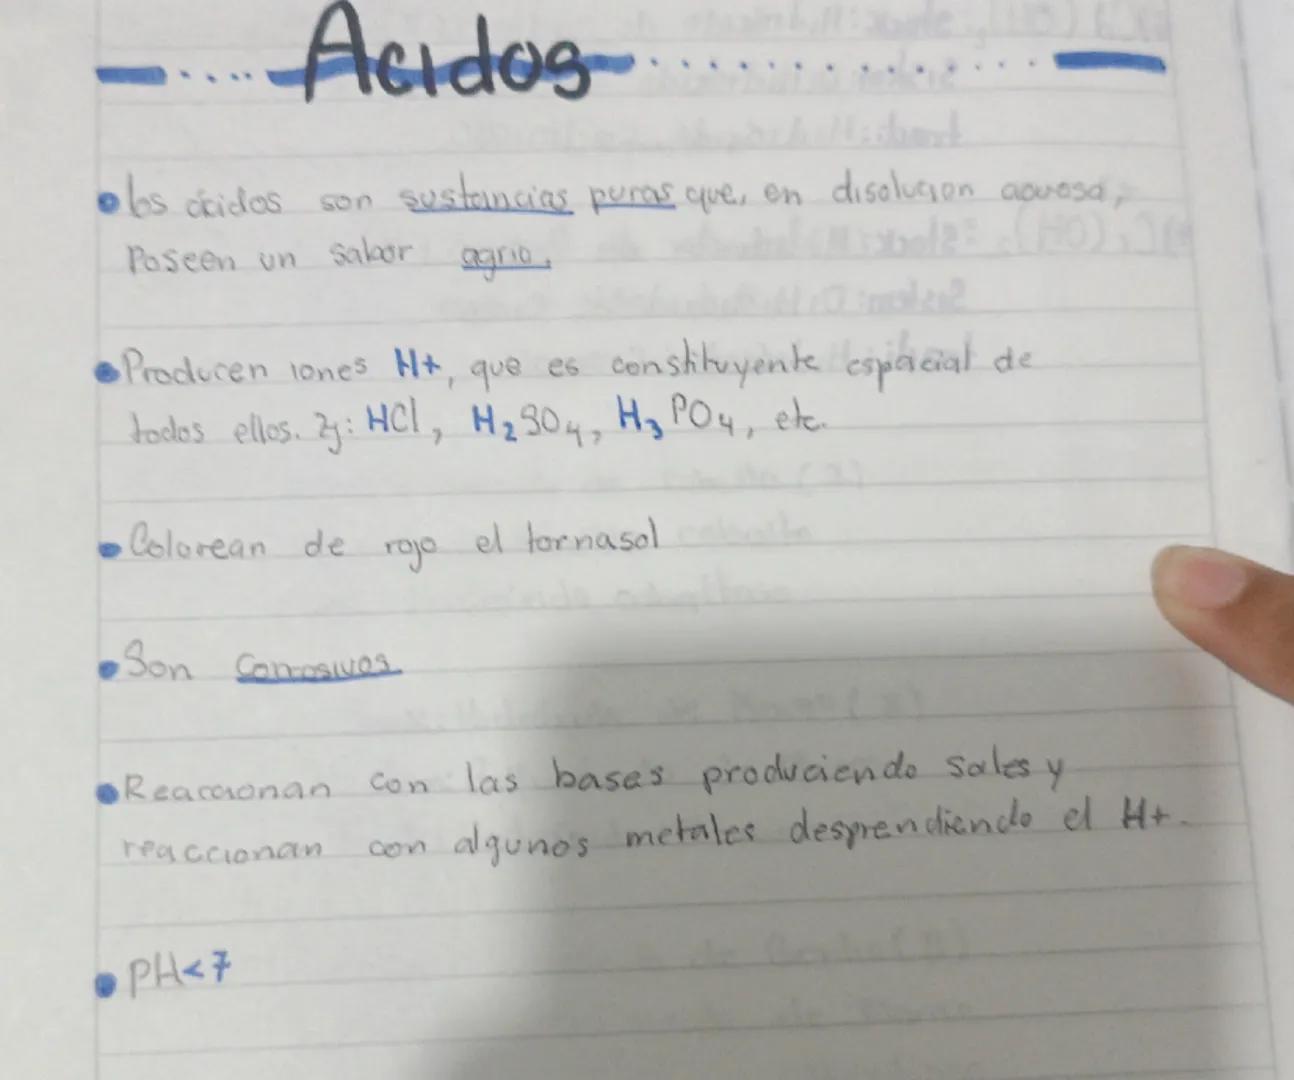 Acidos
los ácidos son sustancias puras que, en disolucion acuosa,
Poseen un sabor agrio.
Producen iones H+, que es constituyente espacial de
todos ellos. Ej: HCl, H₂SO₄, H₃PO₄, etc.
Colorean de rojo el tornasol
Son Corrosivos
Reaccionan con las bases produciendo sales y
reaccionan con algunos metales desprendiendo el H+.
PH<7